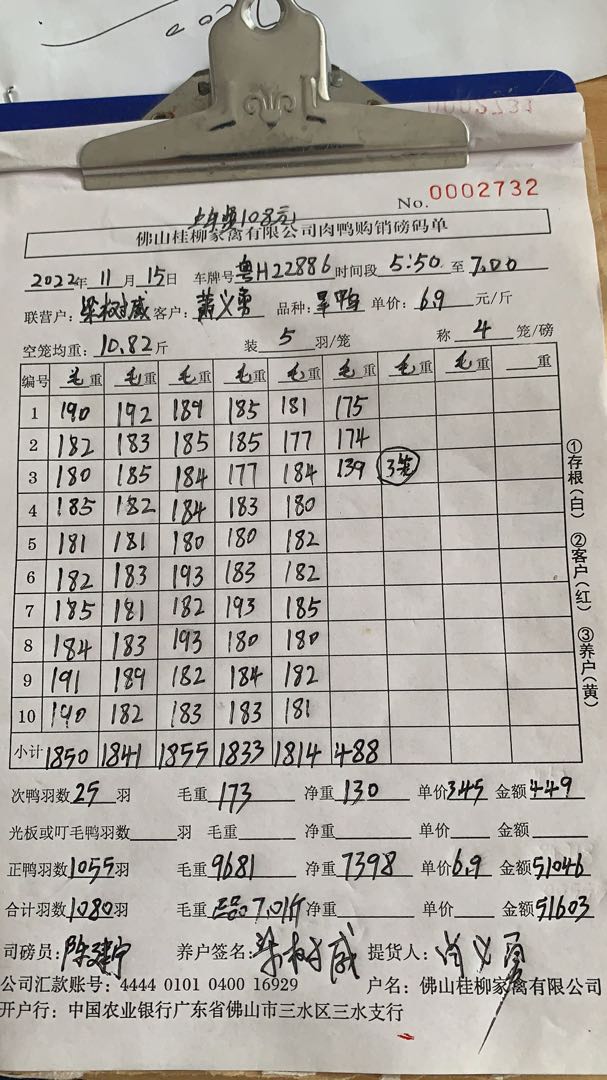 No. 0002732
上车费108元
佛山桂柳家禽有限公司肉鸭购销磅码单
2022年 11月 15日 车牌号 粤H22886 时间段 5:50 至 7:00
联营户: 梁树威 客户: 萧义勇 品种: 旱鸭 单价: 6.9 元/斤
空笼均重: 10.82斤 装 5 羽/笼 称 4 笼/磅
编号 毛重 毛重 毛重 毛重 毛重 毛重 毛重 毛重 重
1 190 192 189 185 181 175
2 182 183 185 185 177 174
3 180 185 184 177 184 139 3笼
4 185 182 184 183 180
5 181 181 180 180 182
6 182 183 193 183 182
7 185 181 182 193 185
8 184 183 193 180 180
9 191 189 182 184 182
10 190 182 183 183 181
小计 1850 1841 1855 1833 1814 488
次鸭羽数 25 羽 毛重 173 净重 130 单价 3.45 金额 449
光板或叮毛鸭羽数 羽 毛重 净重 单价 金额
正鸭羽数 1055 羽 毛重 9681 净重 7398 单价 6.9 金额 51046
合计羽数 1080 羽 毛重 正品7.01斤 净重 单价 金额 51603
司磅员: 陈建宁 养户签名: 梁树威 提货人: 肖义勇
公司汇款账号: 4444 0101 0400 16929 户名: 佛山桂柳家禽有限公司
开户行: 中国农业银行广东省佛山市三水区三水支行
①存根(白) ②客户(红) ③养户(黄)